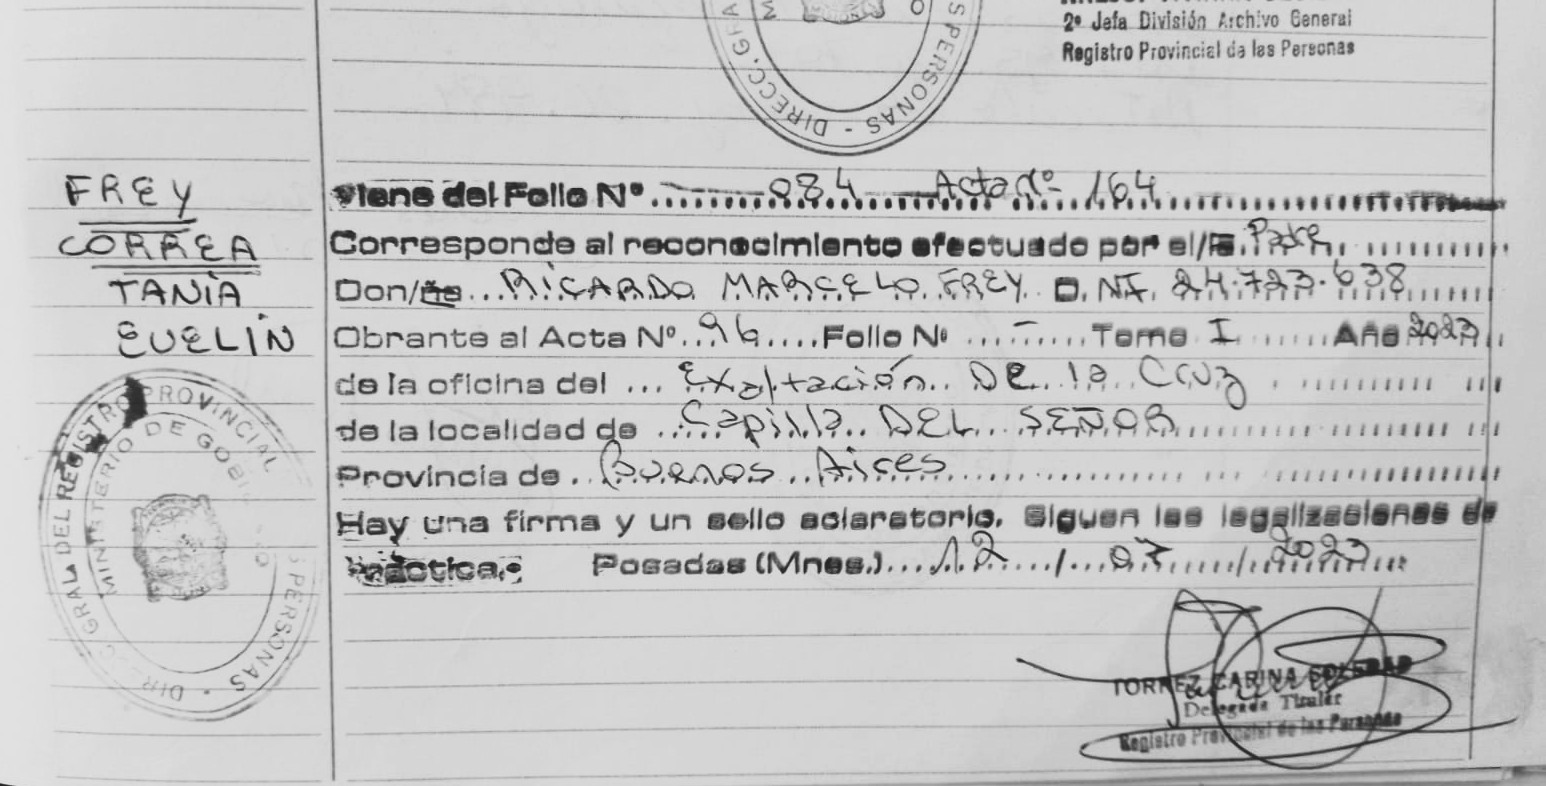 2º Jefa División Archivo General
Registro Provincial de las Personas
S PERSONAS - DIRECC. GRA
FREY
CORREA
TANIA
EVELIN
Viene del Folio Nº 084 Acta nº 164
Corresponde al reconocimiento efectuado por el/la Padre
Don/ña RICARDO MARCELO FREY D.NI. 24.723.638
Obrante al Acta Nº 96 Folio Nº - Tomo I Año 2023
de la oficina del Exaltación DE la Cruz
de la localidad de Capilla DEL SEÑOR
Provincia de Buenos Aires
Hay una firma y un sello aclaratorio. Siguen las legalizaciones de
práctica. Posadas (Mnes.) 12 / 07 / 2023
DIRECC GRAL DEL REGISTRO PROVINCIAL S PERSONAS
MINISTERIO DE GOBI NO
TORREZ CARINA SOLEDAD
Delegada Titular
Registro Provincial de las Personas